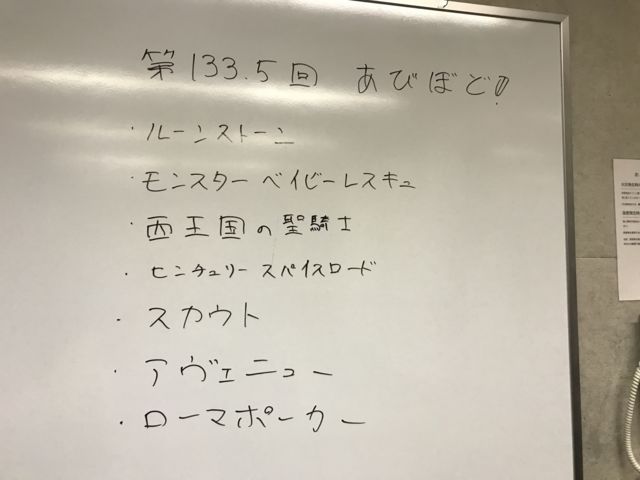 第133.5回 あびぼど!
・ルーンストーン
・モンスターベイビーレスキュー
・西王国の聖騎士
・センチュリースパイスロード
・スカウト
・アヴェニュー
・ローマポーカー